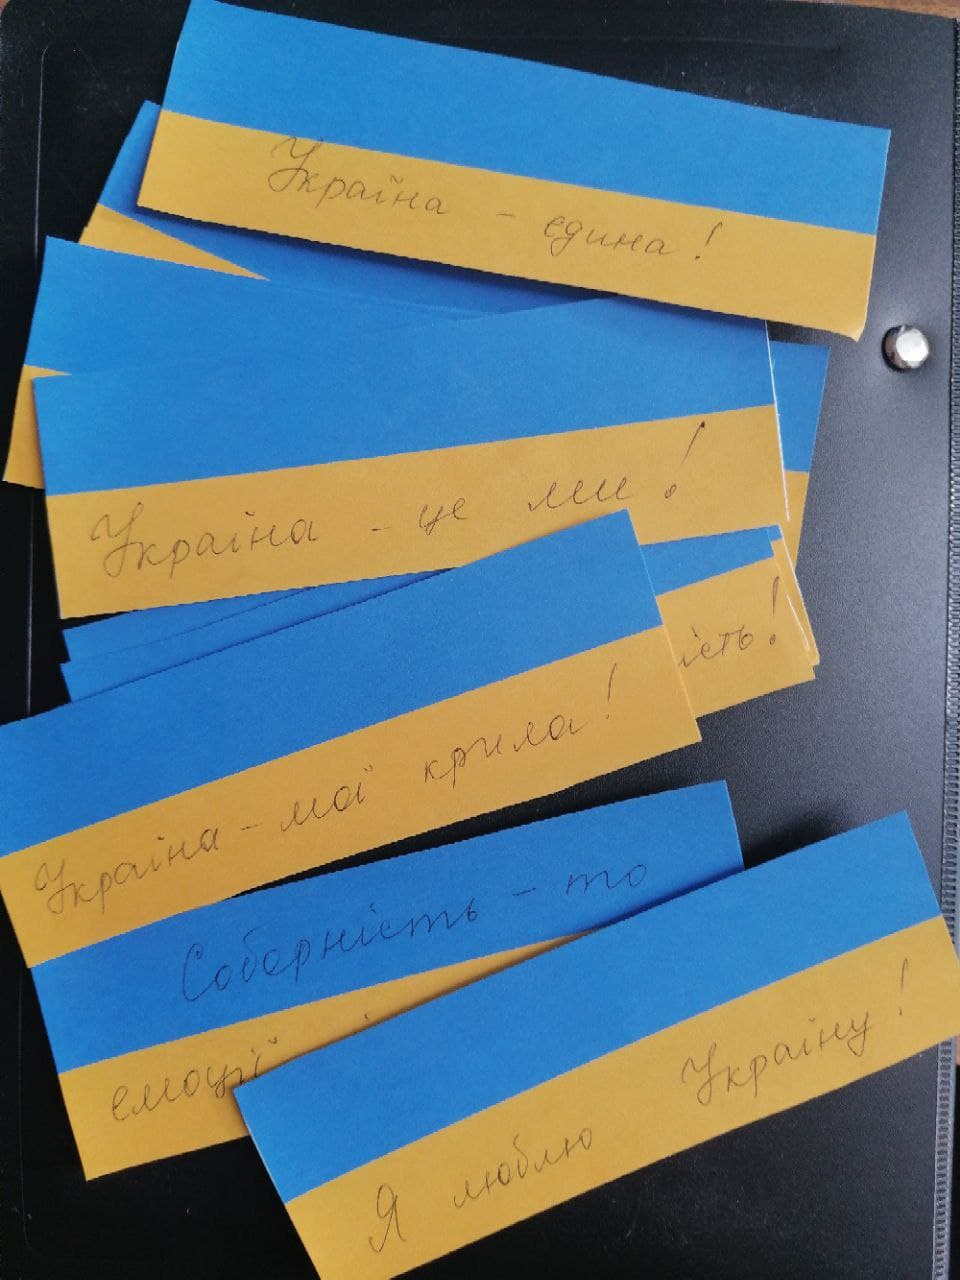 Україна - єдина!
Україна - це ми!
ість!
Україна - мої крила!
Соборність - то
емоції
Я люблю Україну!